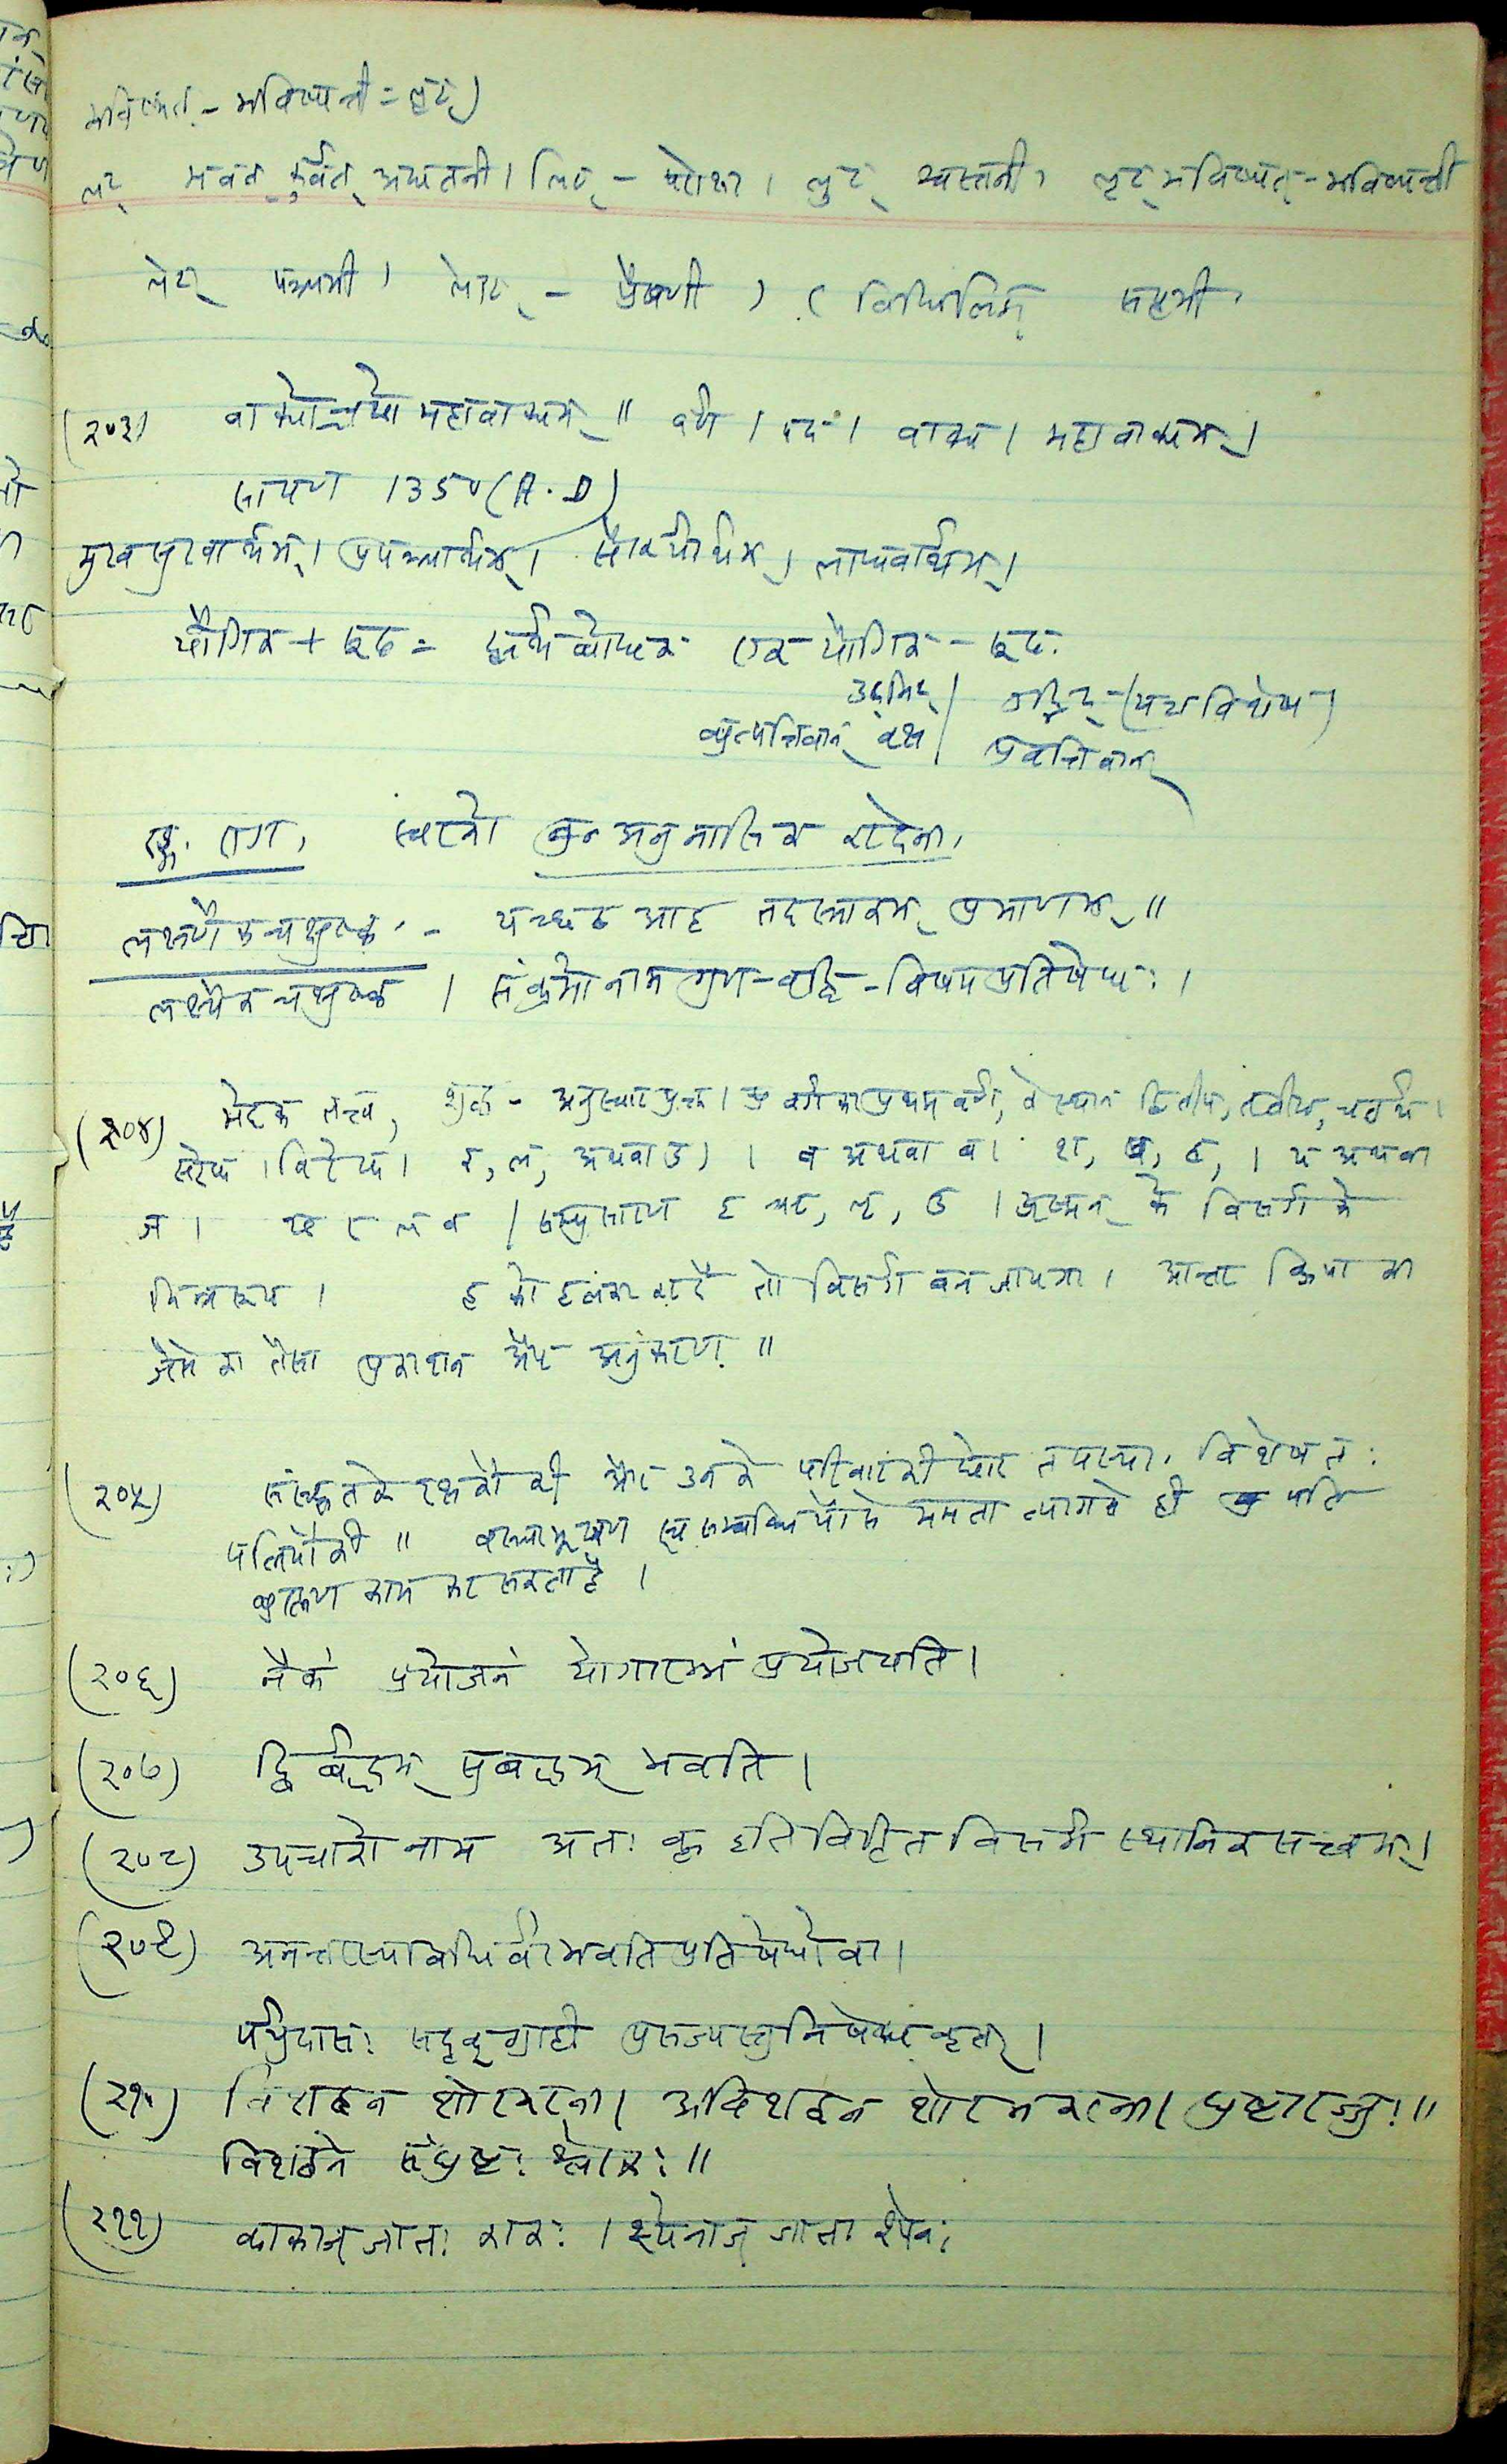 भविष्यत् - भविष्यन्ती = लृट्)
लट् भवत् कुर्वत् अद्यतनी। लिट् - परोक्षा। लुट् श्वस्तनी। लृट् भविष्यत् - भविष्यन्ती
लेट् पञ्चमी। लोट् - प्रैषणी। (विधिलिङ् सप्तमी।
(२०३) वाक्योच्चयो महावाक्यम्॥ वर्ण। पद। वाक्य। महावाक्यम्।
सायण 1350 (A.D)
मुखसुखार्थम्। प्रपञ्चार्थम्। सौकर्यार्थम्। लाघवार्थम्।
यौगिक + रूढ = एक यौगिक - रूढ.
उद्भिद् | उद्भिद् - (यज्ञविशेष)
व्युत्पत्तिवान् वृक्ष | प्रवृत्तिवान्
स्वरको अनुनासिक करदेना,
लक्षणैकचक्षुष्क - यच्छब्द आह तदस्माकम् प्रमाणम्॥
लक्ष्यैकचक्षुष्क। संक्रमो नाम गुण - वृद्धि - विषयप्रतिषेधः।
(२०४) भेदक तत्त्व, अनुस्वारयुक्त। वर्गका प्रथम वर्ण, के स्थान द्वितीय, तृतीय, चतुर्थ।
सरेफ। विरेफ। र, ल, अथवा ड)। व अथवा ब। श, ष, स,। य अथवा
ज। य र ल व | सम्प्रसारण इ ऋ, लृ, उ। के विसर्ग के
भिन्नरूप। ह को हलका करदें तो विसर्ग बन जायगा। क्रिया का
जैसे का तैसा प्रकाशन और अनुकरण॥
(२०५) संस्कृतके रक्षकों की और उनके परिवारकी घोर तपस्या. विशेषतः
पत्नियोंकी॥ वस्त्राभूषण सम्बन्धियोंसे ममता त्यागसे ही पति
काम कर सकता है।
(२०६) नैकं प्रयोजनं योगारम्भं प्रयोजयति।
(२०७) द्विर्बद्धम् सुबद्धम् भवति।
(२०८) उपचारो नाम अतः कृ इति विहित विसर्ग स्थानिक सत्वम्।
(२०९) अनन्तरस्य विधिर्वा भवति प्रतिषेधो वा।
पर्युदासः सदृक्ग्राही प्रसज्यस्तु निषेधकृत्।
(२१०) विशब्दन शोरकरना। अविशब्दन शोर न करना। घुष्टा रज्जुः॥
विशब्दने संघुष्टः श्लोकः॥
(२११) काकाज् जातः काकः। श्येनाज् जातः श्येनः